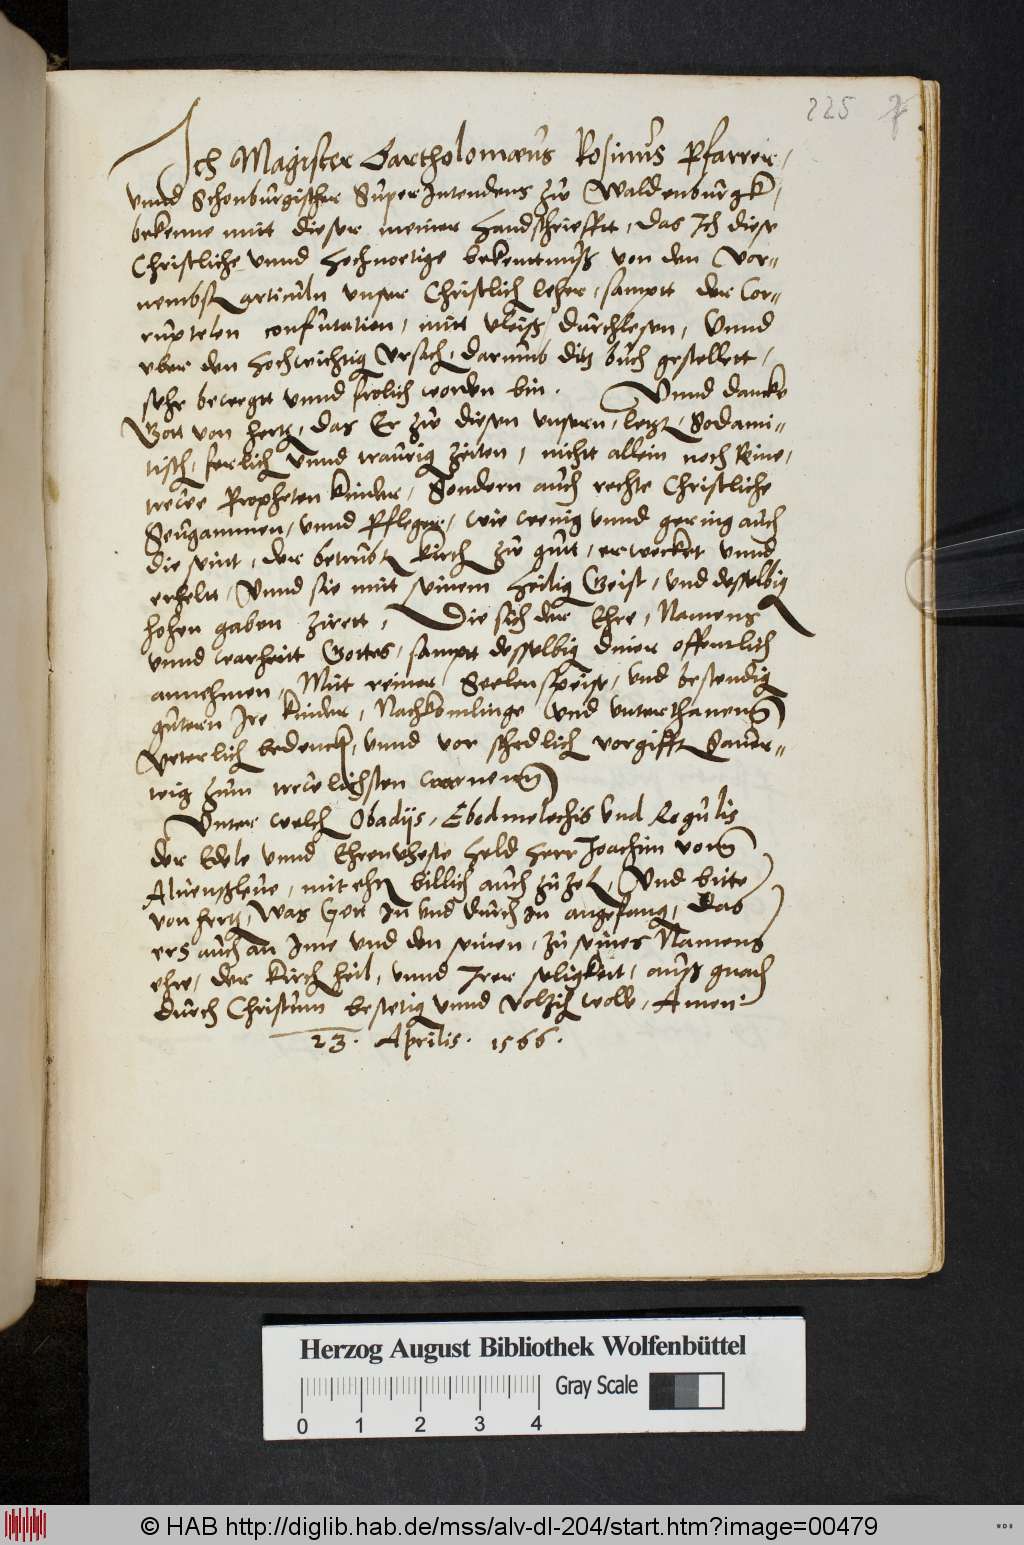 225
Ich Magister Bartholomæus Rosinus Pfarrer,
vnnd Schonburgischer Superintendens zu Waldenburgk,
bekenne mitt dieser meiner Handschriefft, das Ich diese
Christliche vnnd hochnoetige bekenttnuß von den Vor-
nembst articuln vnser Christlich leher, sampt der Cor-
ruptelen confutation, mitt vleiß durchlesen, Vnnd
vber den hochwichtig vrsach, darumb ditz buch gestellett,
sehr bewegt vnnd frolich worden bin. Vnnd dancke
Gott von hertz, das Er zu diesen vnsern, letzt, Sodami-
tisch, ferlich vnnd traurig zeiten, nicht allein noch seine,
trewe Propheten kinder, Sondern auch rechte Christliche
Seugammen, vnnd Pfleger, wie wenig vnnd gering auch
die seint, der betrubt kirch zu gutt, erwecket vnnd
erhelt, Vnnd sie mitt seinem heilig Geist, vnd desselbig
hohen gaben zirett, Die sich der Ehre, Namens
vnnd warheitt Gottes, sampt desselbig diener offentlich
annehmen, Mitt reiner Seelen speise, vnd bestendig
gutern Ire kinder, Nachkomlinge vnd vnterthanenn
veterlich bedenck, vnnd vor schedlich vorgifft Sauer-
teig zum trewlichsten warnenn
Vnter welch Obadijs, Ebedmelechis vnd Regulis
der Edele vnnd Ehrenveste held Herr Joachim vonn
Aluenßleue, mit ehrn billich auch zu zel, Vnd bitte
von hertz, Was Gott In vnd durch In angefang, das
ers auch an Ime vnd den seinen, zu seines Namens
ehre, der kirch heil, vnnd Irer seligkeit, auß gnad
durch Christum bestetig vnnd volzih wolle, Amen:
23. Aprilis. 1566.
Herzog August Bibliothek Wolfenbüttel
Gray Scale
0 1 2 3 4
© HAB http://diglib.hab.de/mss/alv-dl-204/start.htm?image=00479